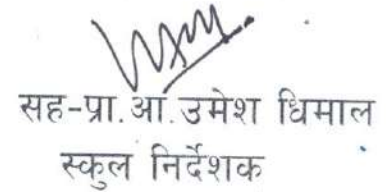 सह-प्रा.आ.उमेश धिमाल
स्कुल निर्देशक